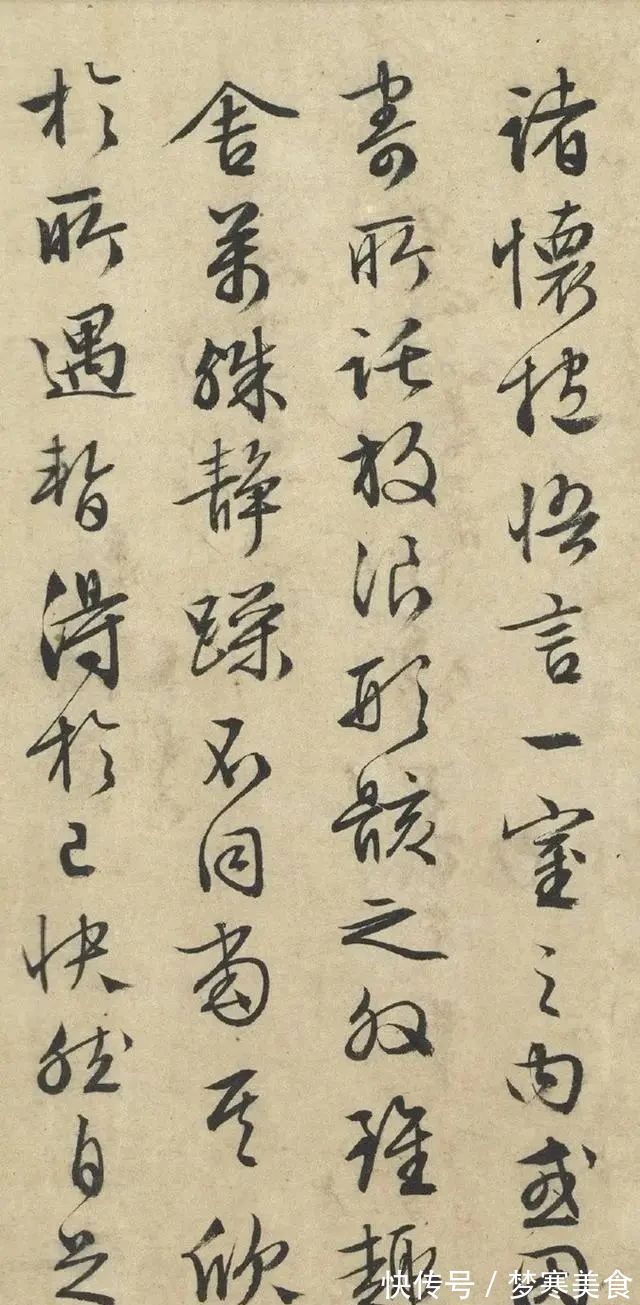 諸懷抱悟言一室之内或因
寄所託放浪形骸之外雖趣
舍萬殊静躁不同當其欣
於所遇暫得於己快然自足
快传号/梦寒美食